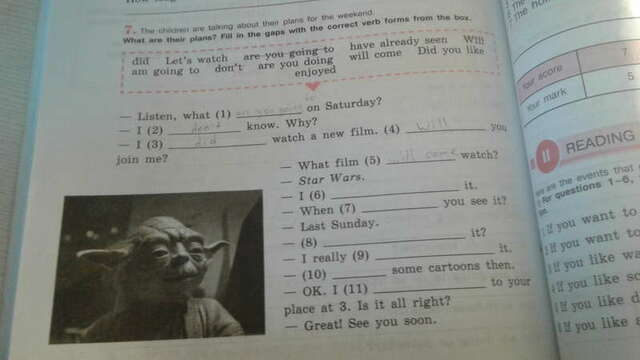 7. The children are talking about their plans for the weekend.
What are their plans? Fill in the gaps with the correct verb forms from the box.
did Let's watch are you going to have already seen Will
am going to don't are you doing will come Did you like
enjoyed
— Listen, what (1) on Saturday?
— I (2) don't know. Why?
— I (3) did watch a new film. (4) will you
join me?
— What film (5) will come watch?
— Star Wars.
— I (6) it.
— When (7) you see it?
— Last Sunday.
— (8) it?
— I really (9) it.
— (10) some cartoons then.
— OK. I (11) to your
place at 3. Is it all right?
— Great! See you soon.
Your score 7
Your mark 5
II READING
For questions 1–6,
If you want to
If you want to
If you like
If you like
If you like
If you like